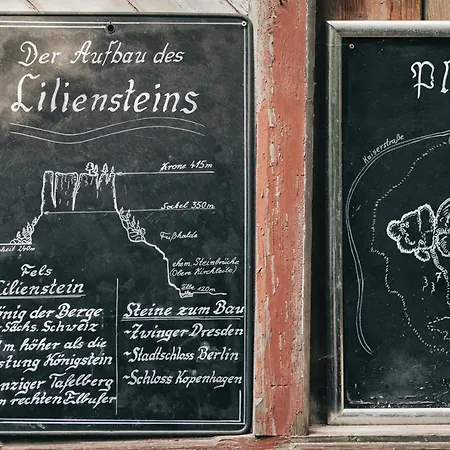 Der Aufbau des
Liliensteins
Krone 415m
Sockel 350m
Fußhalde
ehem. Steinbrüche
(Obere Kirchleite)
heit 240m
Elbe 120m
Fels
Lilienstein
nig der Berge
Sächs. Schweiz
m höher als die
stung Königstein
nziger Tafelberg
m rechten Elbufer
Steine zum Bau
-Zwinger Dresden
-Stadtschloss Berlin
-Schloss Kopenhagen
Pl
Kaiserstraße
7